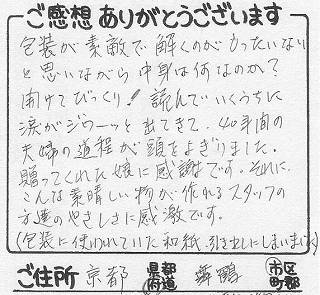 ご感想ありがとうございます
包装が素敵で解くのがもったいない
と思いながら中身は何なのか?
開けてびっくり!読んでいくうちに
涙がジワーッと出てきて、40年間の
夫婦の道程が頭をよぎりました。
贈ってくれた娘に感謝です。それに
こんな素晴しい物が作れるスタッフの
方達のやさしさに感激です。
(包装に使われていた和紙、引き出しにしまいました)
ご住所 京都 都道府県 市区町郡